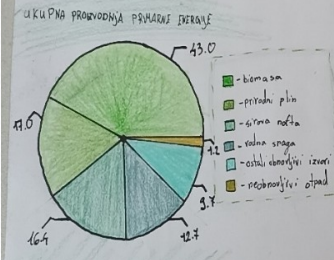 UKUPNA PROIZVODNJA PRIMARNE ENERGIJE
43.0
17.0
16.4
12.7
9.7
1.2
- biomasa
- prirodni plin
- sirova nafta
- vodna snaga
- ostali obnovljivi izvori
- neobnovljivi otpad